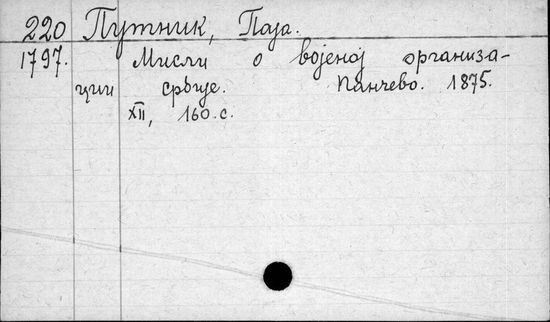 220 Путник, Паја.
1797. Мисли о војеној организа-
ции србије. Панчево. 1875.
XII, 160.с.